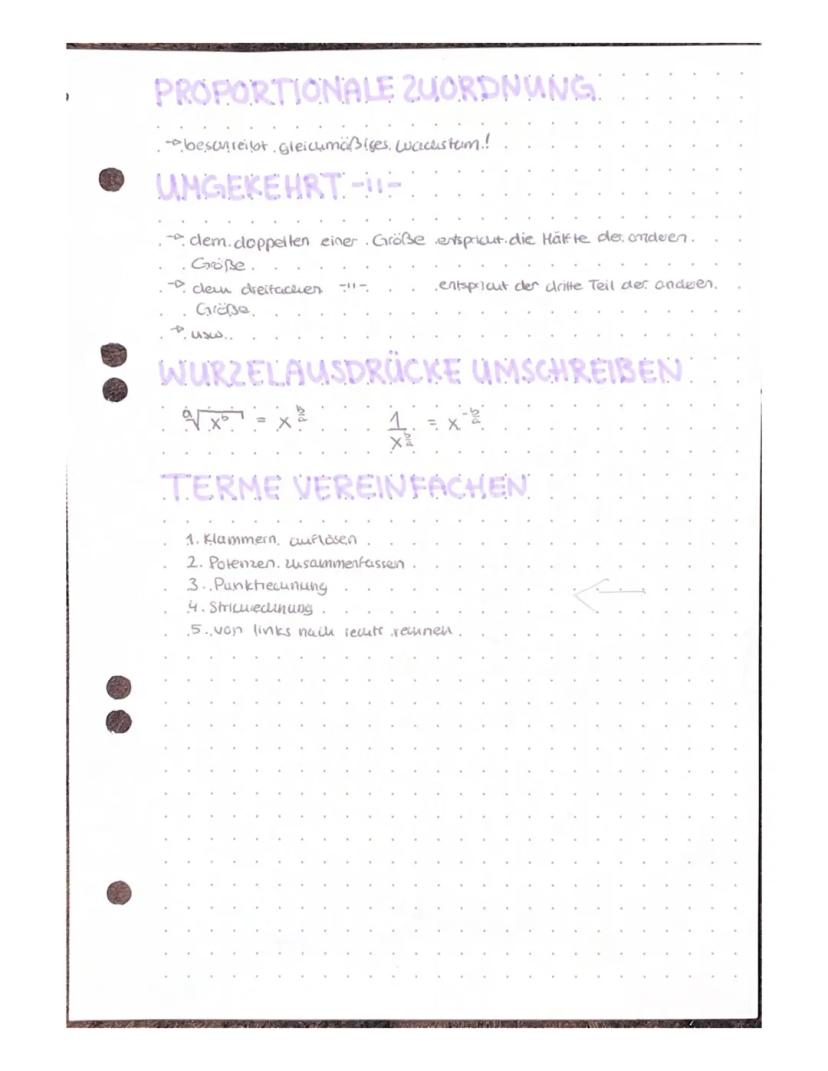 PROPORTIONALE ZUORDNUNG
→ beschreibt gleichmäßiges Wachstum!
UMGEKEHRT -11-
→ dem doppelten einer Größe entspricht die Hälfte der anderen
Größe.
→ dem dreifachen -11- entspricht der dritte Teil der anderen
Größe.
→ usw.
WURZELAUSDRÜCKE UMSCHREIBEN
ᵃ√x^b = x^(b/a) 1/x^(b/a) = x^(-b/a)
TERME VEREINFACHEN
1. Klammern auflösen
2. Potenzen zusammenfassen
3. Punktrechnung
4. Strichrechnung
5. von links nach rechts rechnen